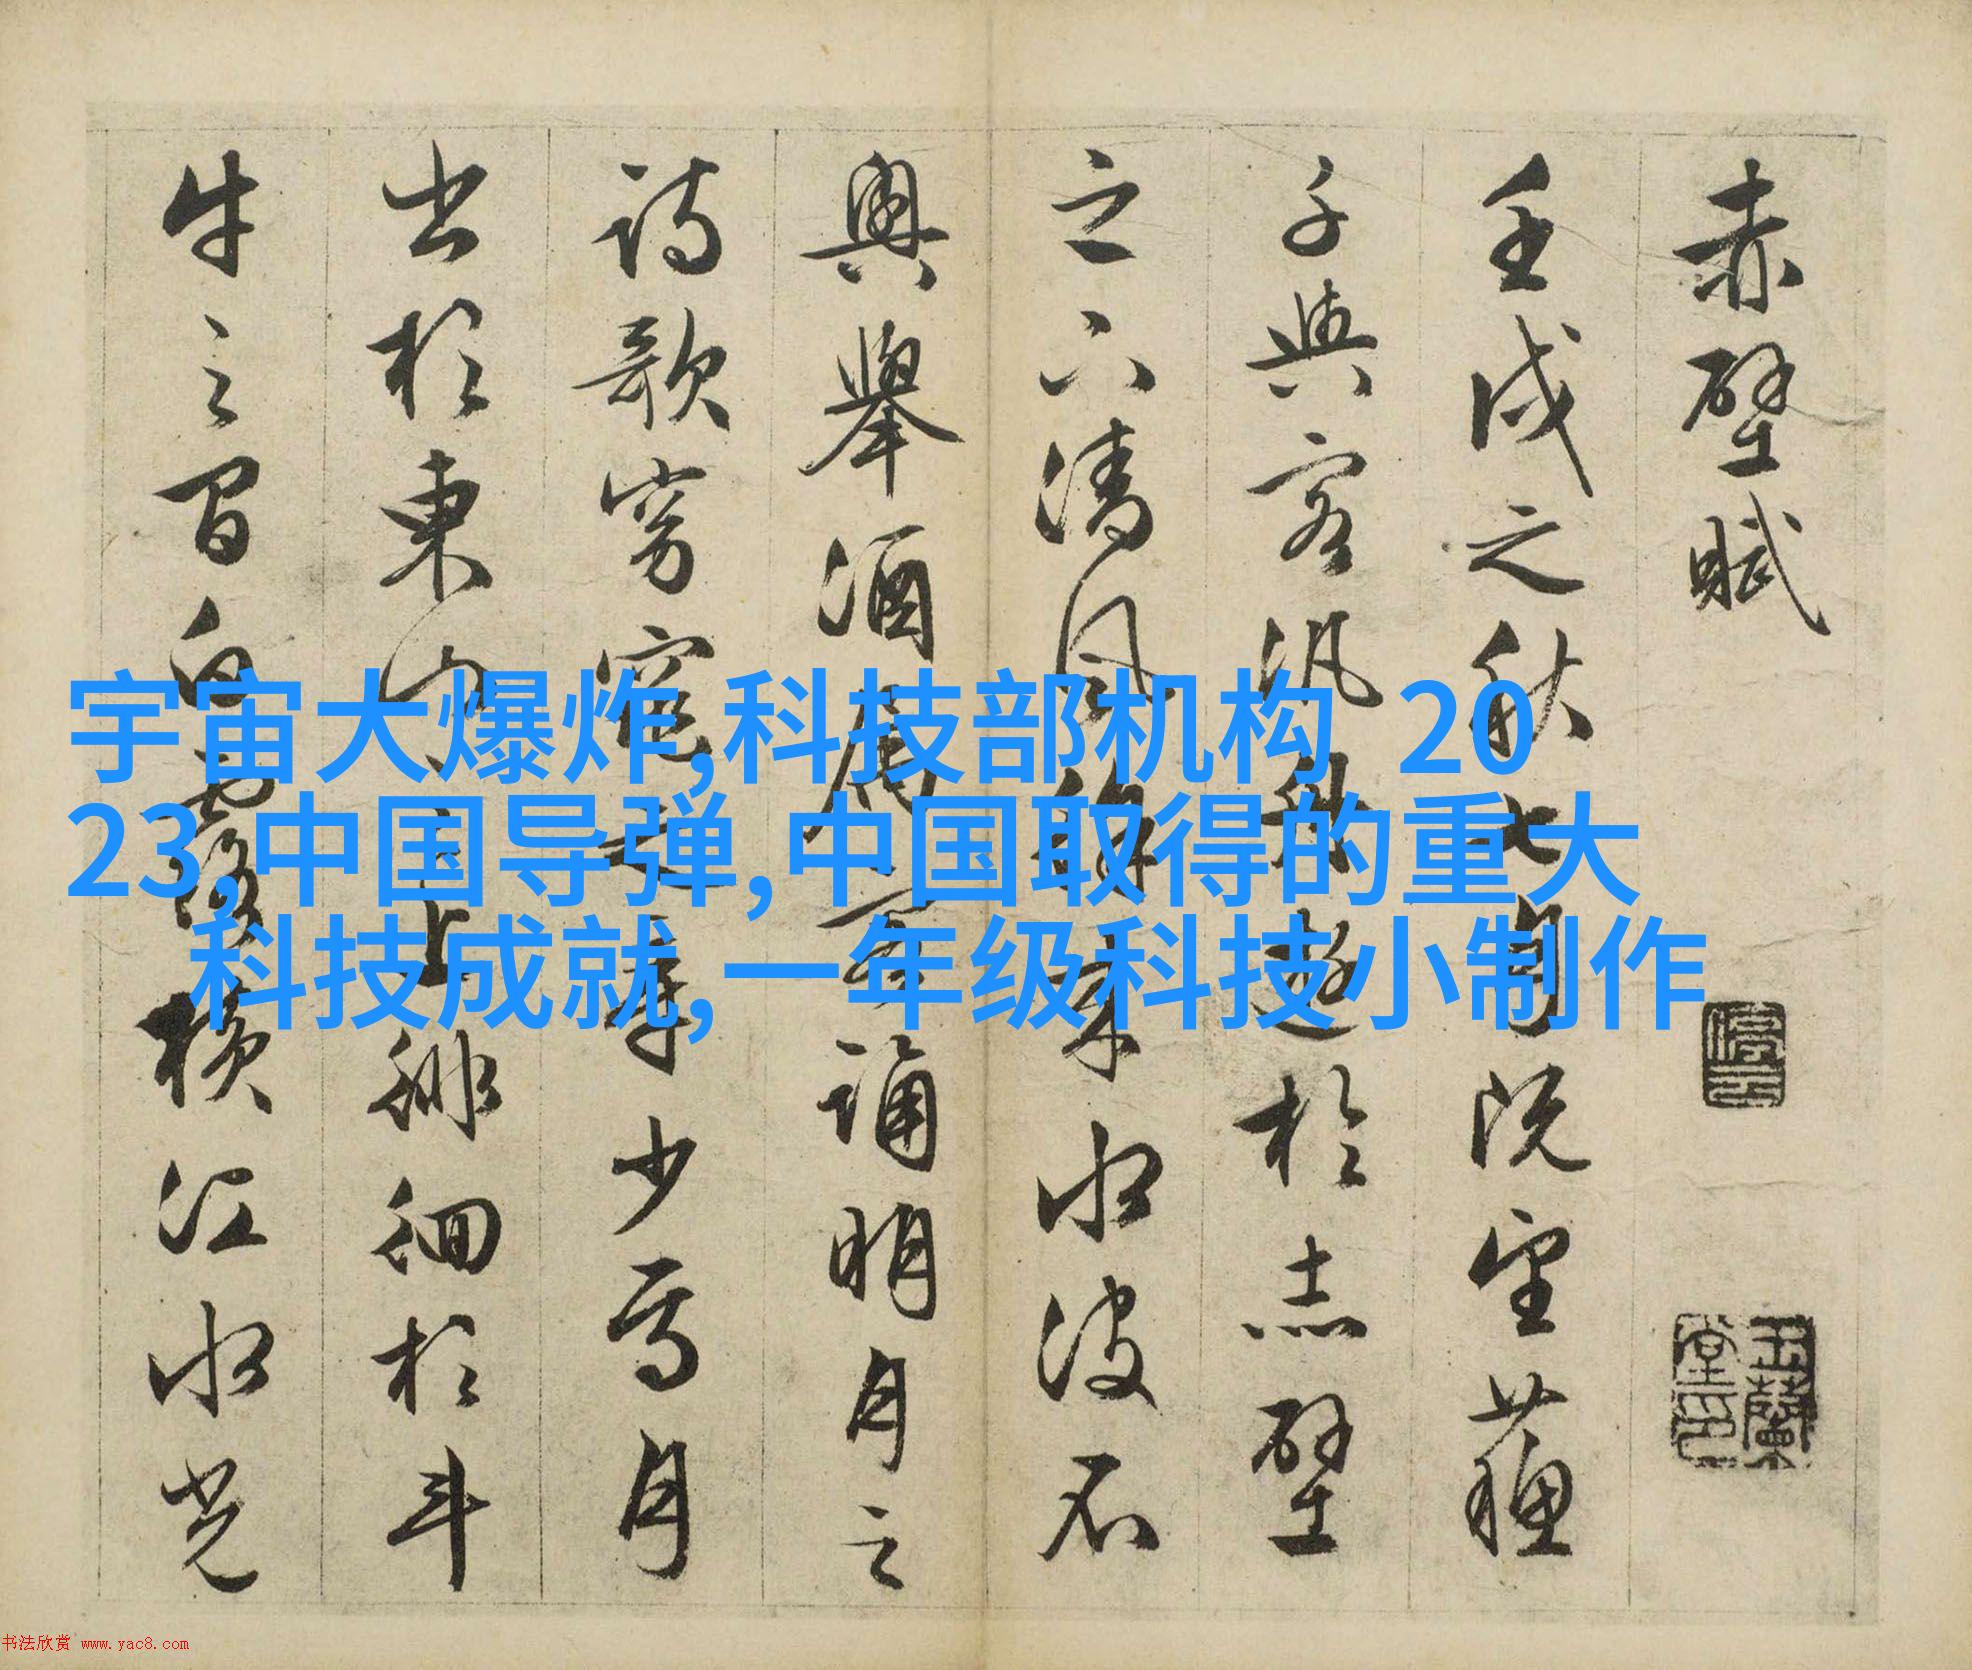 赤壁賦
壬戌之秋七月既望蘓
子與客汎舟遊於赤壁
之下清風徐來水波不
興舉酒屬客誦明月之
詩歌窈窕之章少焉月
出於東山之上徘徊於斗
牛之間白露橫江水光
宇宙大爆炸,科技部机构 20
23,中国导弹,中国取得的重大
科技成就,一年级科技小制作
停雲
玉蘭堂印
书法欣赏 www.yac8.com